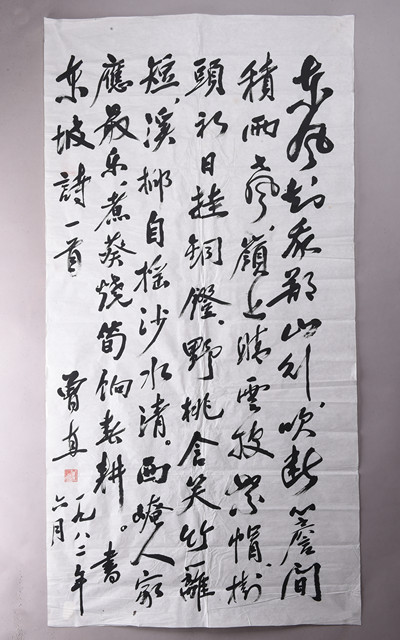 东风知我欲山行,吹断簷間
積雨声。嶺上晴雲披絮帽,樹
頭初日挂銅鐙,野桃含笑竹籬
短,溪柳自摇沙水清。西崦人家
應最乐,煮葵燒筍餉春耕。書
东坡詩一首
一九八二年
六月